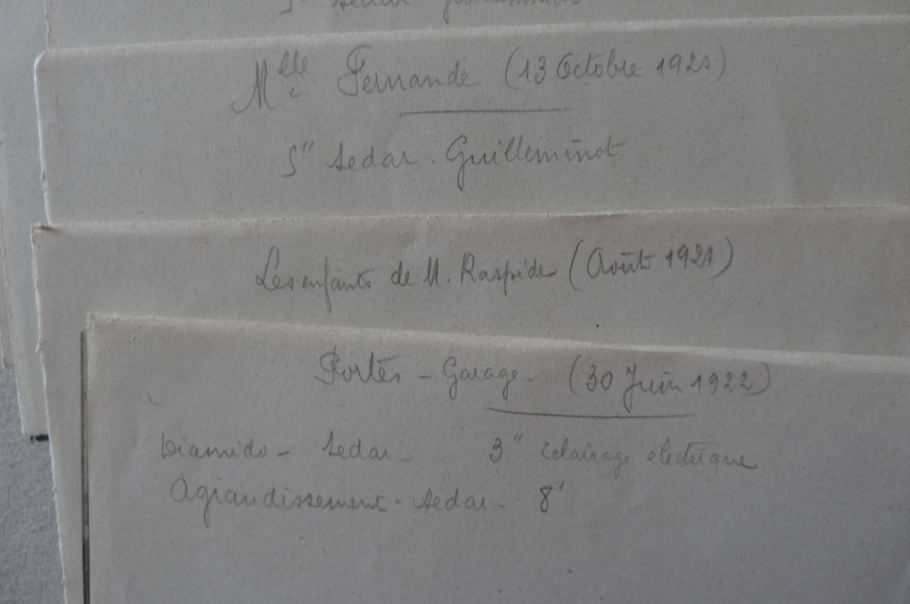 5" Sedar Guilleminot
Mlle Fernande (13 Octobre 1921)
5" Sedar. Guilleminot
Les enfants de M. Raspide (Août 1921)
Portes - Garage - (30 Juin 1922)
Diamido - Sedar - 3" éclairage électrique
Agrandissement - Sedar - 8'